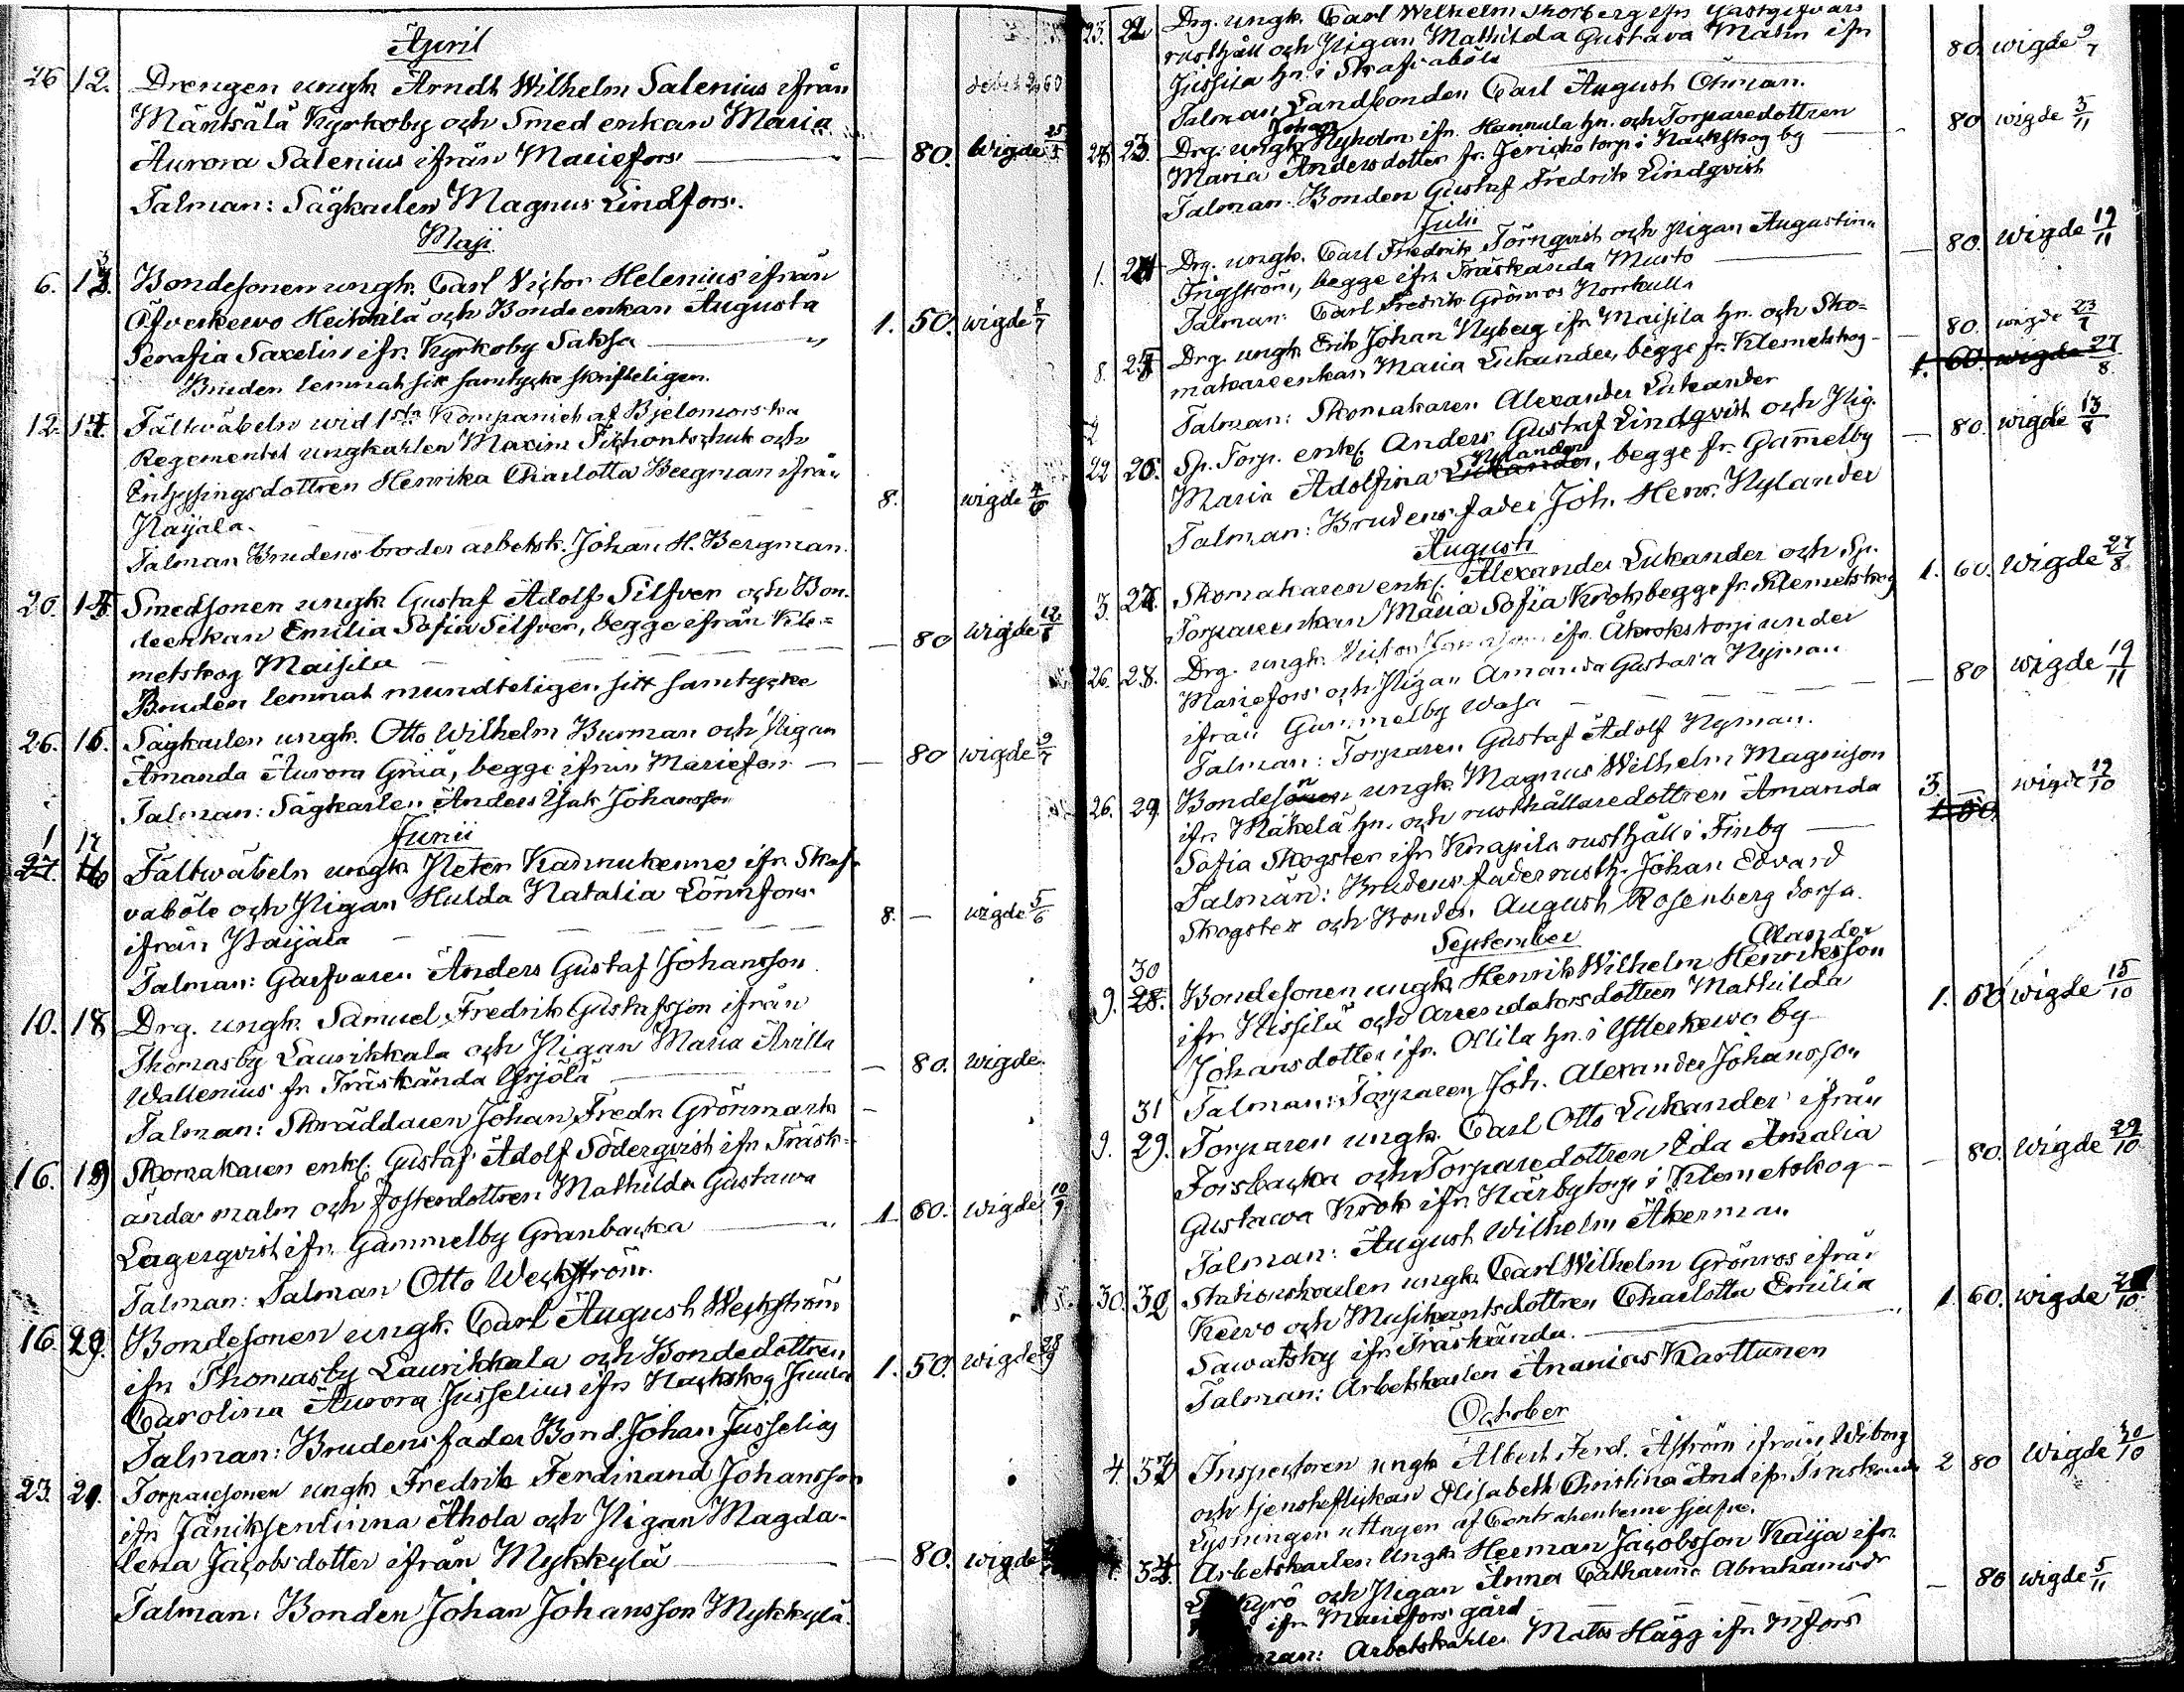 April
26 12. Drengen ungk. Arndt Wilhelm Salenius ifrån
Mäntsälä Kyrkoby och Smed enkan Maria
Aurora Salenius ifrån Mariefors — 80. wigde 25/5
Talman: Sågkarlen Magnus Lindfors.
Maji
6. 13. Bondesonen ungk. Carl Victor Helenius ifrån
Öfverkervo Heikkilä och Bondeenkan Augusta
Serafia Saxelin ifr. Kyrkoby Saksa 1. 50. wigde 8/7
Bruden lemnat sitt samtycke skrifteligen.
12. 14. Fältwäbeln wid 1sta Kompaniet af Bjelomorska
Regementet ungkarlen Maxim Tichontschuk och
Enhysingsdottren Henrika Charlotta Bergman ifrån
Nayala. 8. wigde 4/6
Talman Brudens broder arbetsk. Johan H. Bergman.
20. 15 Smedsonen ungk. Gustaf Adolf Silfver och Bon-
deenkan Emilia Sofia Silfver, begge ifrån Kle-
metskog Maisila — 80 wigde 12/8
Bruden lemnat mundteligen sitt samtycke
26. 16. Sågkarlen ungk. Otto Wilhelm Burman och Pigan
Amanda Aurora Gråå, begge ifrån Mariefors — 80 wigde 9/7
Talman: Sågkarlen Anders Isak Johansson
Junii
1 17
27. 16 Fältwäbeln ungk. Peter Kannukenne ifr. Skaf-
vaböle och Pigan Hulda Natalia Lönnfors
ifrån Nayala 8. — wigde 5/6
Talman: Garfvaren Anders Gustaf Johansson
10. 18 Drg. ungk. Samuel Fredrik Gustafsson ifrån
Thomasby Laurikkala och Pigan Maria Arilla
Wallenius fr. Träskända Yrjölä — 80. wigde
Talman: Skräddaren Johan Fredr. Grönmark
16. 19 Skomakaren enkl. Gustaf Adolf Söderqvist ifr. Träsk-
ända malm och fosterdottren Mathilda Gustawa
Lagerqvist ifr. Gammelby Granbacka 1. 60. wigde 10/9
Talman: Talman Otto Weckström.
16. 20. Bondesonen ungk. Carl August Weckström
ifr Thomasby Laurikkala och Bondedottren
Carolina Aurora Jusselius ifr Nackskog Juula 1. 50. wigde 28/9
Talman: Brudens fader Bond. Johan Jusselius
23. 21. Torparesonen ungk. Fredrik Ferdinand Johansson
ifr Jäniksenlinna Ahola och Pigan Magda-
lena Jacobsdotter ifrån Mykkylä — 80. wigde
Talman: Bonden Johan Johansson Mykkylä.
23. 22 Drg. ungk. Carl Wilhelm Thorberg ifr. Gästgifvars
rusthåll och Pigan Mathilda Gustava Malm ifr
Jussila hn. i Skafvaböle 80. wigde 9/7
Talman Landbonden Carl August Öhman.
Johan
24 23. Drg. ungk. Nyholm ifr. Hannula hn. och Torparedottren
Maria Andersdotter fr. Jerichotorp i Nackskog by — 80 wigde 5/11
Talman. Bonden Gustaf Fredrik Lindqvist
Julii
1. 24 Drg. ungk. Carl Fredrik Törnqvist och Pigan Augustina
Frigström, begge ifr. Träskända Musto — 80. wigde 19/11
Talman: Carl Fredrik Grönros Norrkulla
8. 25 Drg. ungk. Erik Johan Nyberg ifr. Maisila hn. och Sko-
makareenkan Maria Lukander, begge fr. Klemetskog — 80. wigde 23/7
1. 60. wigde 27/8
Talman: Skomakaren Alexander Lukander
22 26. Sp. Torp. enkl. Anders Gustaf Lindqvist och Pig.
Nylander
Maria Adolfina Lukander, begge fr. Gam̄elby — 80. wigde 13/8
Talman: Brudens fader Joh. Henr. Nylander
Augusti
3. 27. Skomakaren enkl. Alexander Lukander och Sp.
Torpareenkan Maria Sofia Krok begge fr. Klemetskog 1. 60. wigde 27/8
26. 28. Drg. ungk. ifr. Åkrokstorp under
Mariefors och Pigan Amanda Gustava Nyman
ifrån Gammelby Wasa — 80 wigde 19/11
Talman: Torparen Gustaf Adolf Nyman.
26. 29 Bondesonen ungk. Magnus Wilhelm Magnison
ifr. Mäkelä hn. och rusthållaredottren Amanda 3. — wigde 19/10
Sofia Skogster ifr Knapila rusthåll i Finby 1. 60.
Talmän: Brudens fader rusth. Johan Edvard
Skogster och Bonden August Rosenberg
September
30 Alander
9. 28. Bondesonen ungk. Henrik Wilhelm Henriksson
ifr. Nissilä och arrendatorsdottren Mathilda
Johansdotter ifr. Ollila hn. i Ytterkewo by 1. 50 wigde 15/10
Talman: Torparen Joh. Alexander Johansson
31
9. 29. Torparen ungk. Carl Otto Lukander ifrån
Forsbacka och Torparedottren Eda Amalia
Gustawa Krok ifr. Kärbytorp i Klemetskog — 80. wigde 29/10
Talman: August Wilhelm Åkerman
30. 32 Stationskarlen ungk. Carl Wilhelm Grönros ifrån
Kervo och Musikantsdottren Charlotta Emilia
Sawatsky ifr Träskända. 1. 60. wigde
Talman: Arbetskarlen Ananias Karttunen
October
4. 33 Inspectoren ungk. Albert Ferd. Åström ifrån Wiborg
och tjensteflickan Elisabeth Christina And ifr. Träskända 2 80 wigde 30/10
Lysningen uttagen af Contrahenterne sjelfve.
34 Arbetskarlen Ungk. Herman Jacobsson Kaija ifr.
och Pigan Anna Catharina Abrahamsdr
ifr. Mariefors gård — 80 wigde 5/11
Talman: Arbetskarlen Matts Hägg ifr. Mfors